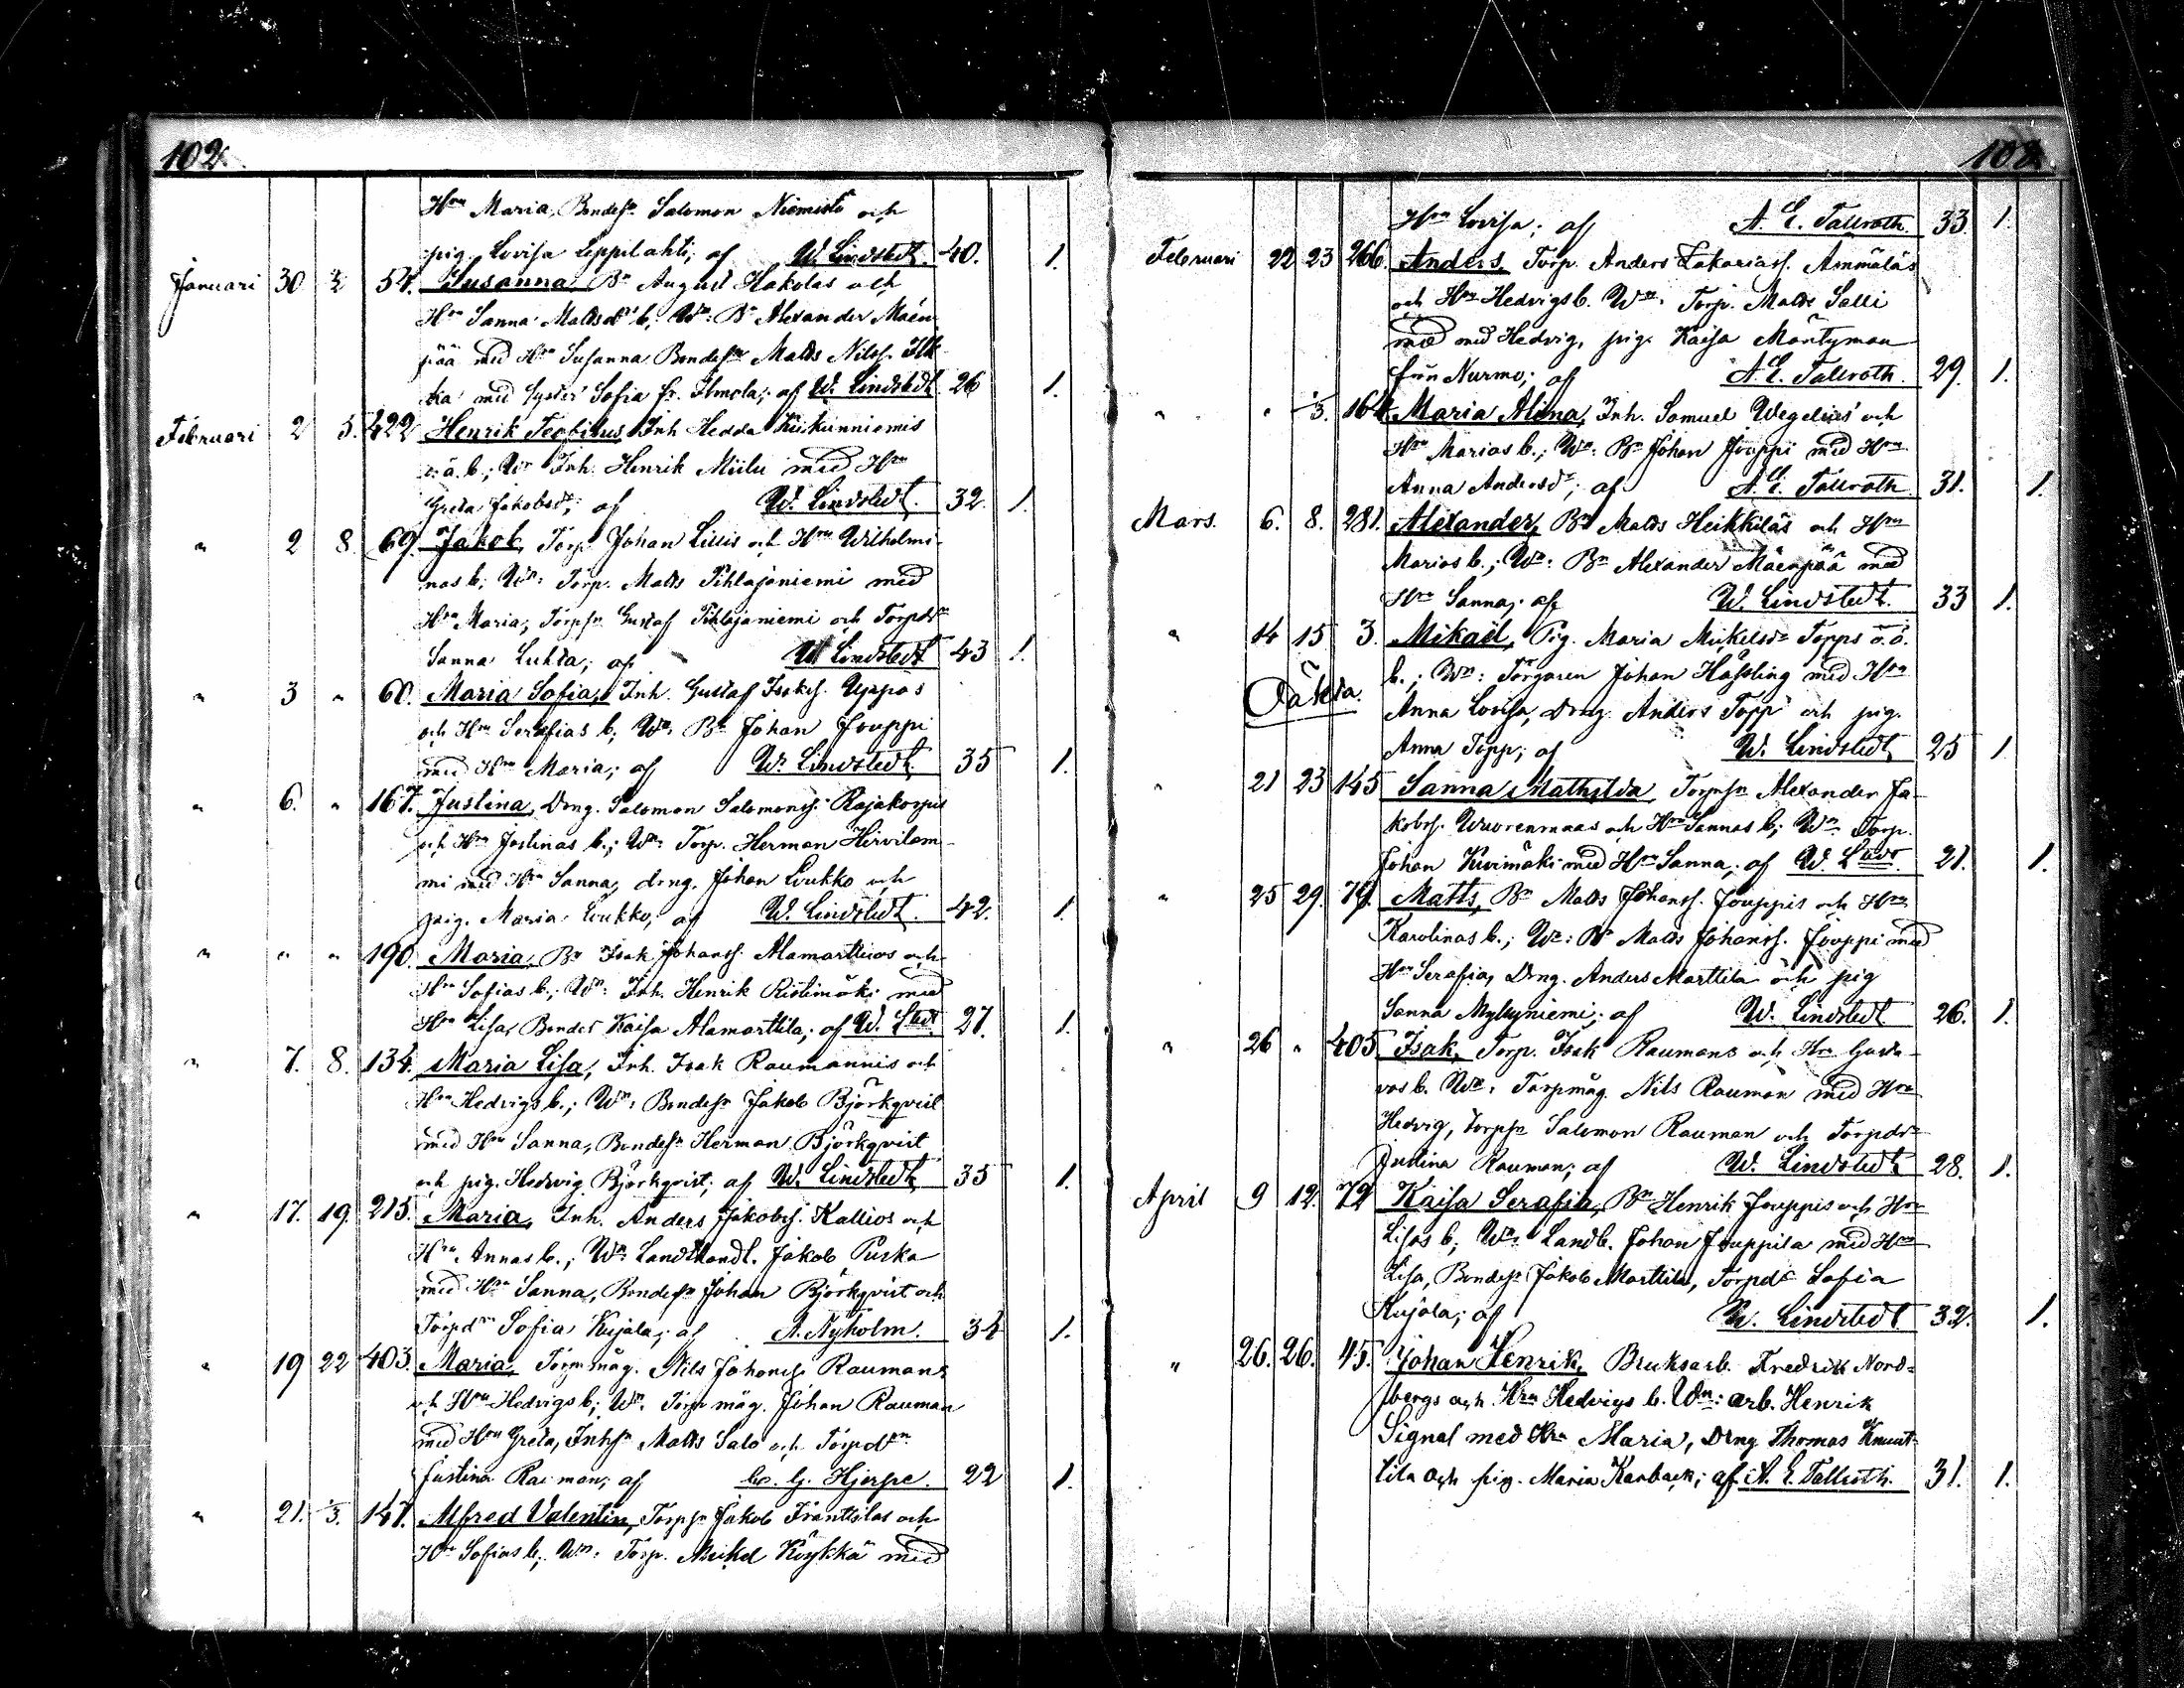 102.
Hru Maria, Bondesn Salomon Niemistö och
pig. Lovisa Leppilahti; af W. Lindstedt. 40. 1.
Januari 30 54. Susanna, Bn August Hakolas och
Hru Sanna Mattsdrs b.; Wn: Bn Alexander Mäen-
pää med Hru Susanna, Bondesn Matts Nilss. Ilk-
ka med Syster Sofia fr. Ilmola; af W. Lindstedt. 26 1.
Februari 2 5. 422 Henrik Teofilus, Inh. Hedda Kiikunniemis
o.ä.b.; Wn Inh. Henrik Miilu med Hru
Greta Jakobsdr; af W. Lindstedt. 32. 1.
" 2 8. 69. Jakob, Torp. Johan Lillis och Hru Wilhelmi-
nas b; Wn: Torp. Matts Pihlajaniemi med
Hru Maria, Torpsn Gustaf Pihlajaniemi och Torpdr
Sanna Luhta; af W. Lindstedt 43 1.
" 3 " 60. Maria Sofia, Inh. Gustaf Isaks. Uppas
och Hru Serafias b; Wn: Bn Johan Jouppi
med Hru Maria; af W. Lindstedt. 35 1.
" 6. " 167. Justina, Drng. Salomon Salomonss. Rajakorpis
och Hru Justinas b.; Wn: Torp. Herman Hirvilam-
mi med Hru Sanna, drng. Johan Loukko och
pig. Maria Loukko; af W. Lindstedt. 42. 1.
" " " 190. Maria, Bn Isak Johanss. Alamarttilas och
Hru Sofias b.; Wn: Inh. Henrik Ristimäki med
Hru Lisa, Bondedr Kaisa Alamarttila; af W. Ltedt. 27. 1.
" 7. 8. 134. Maria Lisa, Inh. Isak Raumannis och
Hru Hedvigs b.; Wn: Bondesn Jakob Björkqvist
med Hru Sanna, Bondesn Herman Björkqvist
och pig. Hedvig Björkqvist; af W. Lindstedt 35 1.
" 17. 19. 215. Maria, Inh. Anders Jakobss. Kallios och
Hru Annas b.; Wn: Landthandl. Jakob Puska
med Hru Sanna, Bondesn Johan Björkqvist och
Torpdr Sofia Kujala; af A. Nyholm. 34 1.
" 19 22 403. Maria, Torpmåg. Nils Johanss. Raumans
och Hru Hedvigs b; Wn: Torpmåg. Johan Rauman
med Hru Greta, Inhsn Matts Salo och Torpdr
Justina Rauman; af G. Hjerpe. 22 1.
" 21. 147. Alfred Valentin, Torpsn Jakob Franttilas och
Hru Sofias b; Wn: Torp. Mickel Köykkä med
Hru Lovisa; af A. E. Tallroth. 33. 1.
Februari 22 23 266. Anders, Torp. Anders Zakariass. Ämmäläs
och Hru Hedvigs b. Wn: Torp. Matts Salli
med med Hedvig, pig. Kaisa Mäntyman
från Nurmo; af A. E. Tallroth. 29. 1.
" " 164 Maria Alina, Inh. Samuel Wegelius och
Hru Marias b.; Wn: Bn Johan Jouppi med Hru
Anna Andersdr; af A. E. Tallroth 31. 1.
Mars. 6. 8. 281. Alexander, Bn Matts Heikkiläs och Hru
Marias b.; Wn: Bn Alexander Mäenpää med
Hru Sanna; af W. Lindstedt. 33 1.
" 14 15 3. Mikael, Pig. Maria Mickelsdr Topps o.ä.
b.; Wn: Torparen Johan Hassling med Hru
Anna Lovisa, Drng. Anders Topp och pig.
Anna Topp; af W. Lindstedt 25 1.
" 21 23 145 Sanna Mathilda, Torpsn Alexander Ja-
kobss. Wuorenmaas och Hru Sannas b; Wn Torp.
Johan Kivimäki med Hru Sanna; af W. Ltedt. 21. 1.
" 25 29. 79. Matts, Bn Matts Johanss. Jouppis och Hru
Karolinas b.; Wn: Bn Matts Johanss. Jouppi med
Hru Serafia, Drng. Anders Marttila och pig
Sanna Myllyniemi; af W. Lindstedt 26. 1.
" 26 " 405 Isak, Torp. Isak Raumans och Hru Gusta-
vas b. Wn: Torpmåg. Nils Rauman med Hru
Hedvig, Torpsn Salomon Rauman och Torpdr
Justina Rauman; af W. Lindstedt 28. 1.
April 9 12. 72 Kaisa Serafia, Bn Henrik Jouppis och Hru
Lisas b; Wn: Landb. Johan Jouppila med Hru
Lisa, Bondesn Jakob Marttila, Torpdr Sofia
Kujala; af W. Lindstedt 32. 1.
" 26. 26. 45. Johan Henrik, Bruksarb. Fredrik Nord-
bergs och Hru Hedvigs b. Wn: arb. Henrik
Signal med Hru Maria, Drng Thomas Knuut-
tila och pig. Maria Karback; af A. E. Tallroth. 31. 1.